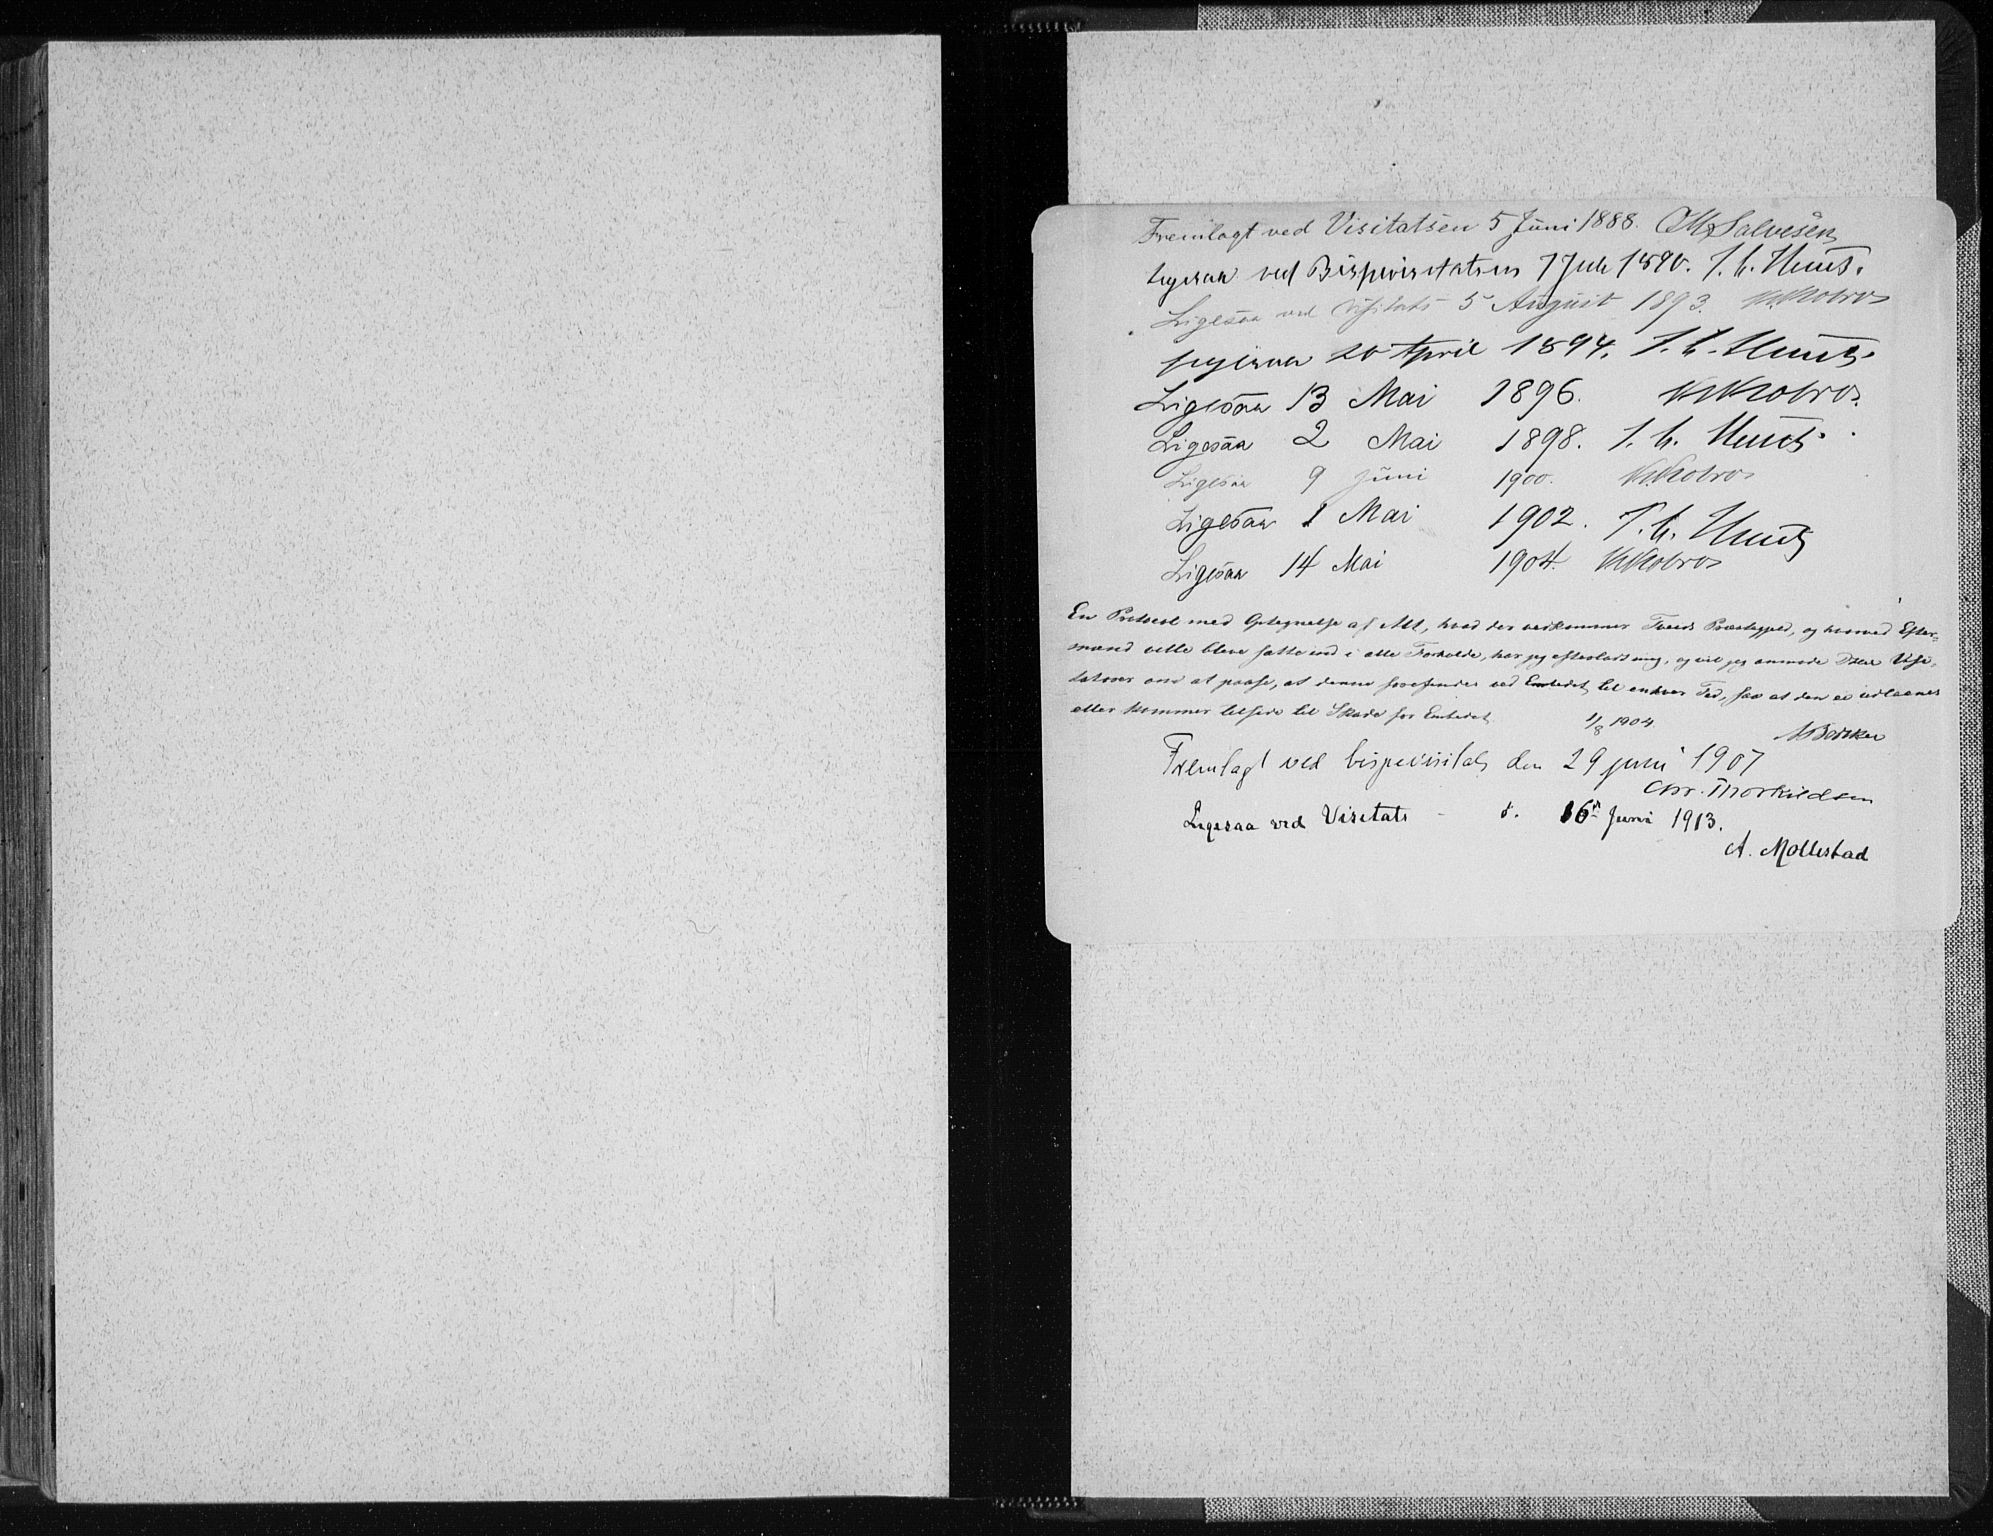 Fremlagt ved Visitatsen 5 Juni 1888. Salvesen
Ligesaa ved Bispevisitatsen 7 Juli 1890. J. C. Heuch.
Ligesaa ved Visitats 5 August 1893.
Ligesaa 20 April 1894. J. C. Heuch.
Ligesaa 13 Mai 1896.
Ligesaa 2 Mai 1898. J. C. Heuch.
Ligesaa 9 Juni 1900.
Ligesaa 1 Mai 1902. J. C. Heuch
Ligesaa 14 Mai 1904.
En Protocol med Optegnelse af Alt, hvad der vedkommer Tveds Præstegjæld, og hvorved Efter-
mænd ville blive satte ind i alle Forholde, har jeg efterladt mig, og vil jeg anmode DHrr Visi-
tatorer om at paase, at denne forefindes ved Embedet til enhver Tid, saa at den ei udlaanes
eller kommer tilside til Skade for Embedet 1/8 1904.
Fremlagt ved bispevisitats den 29 juni 1907
Chr. Thorkildsen
Ligesaa ved Visitats - d. 16de Juni 1913.
A. Mollestad